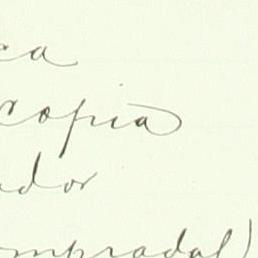 ca
copia
ador
mpradal)